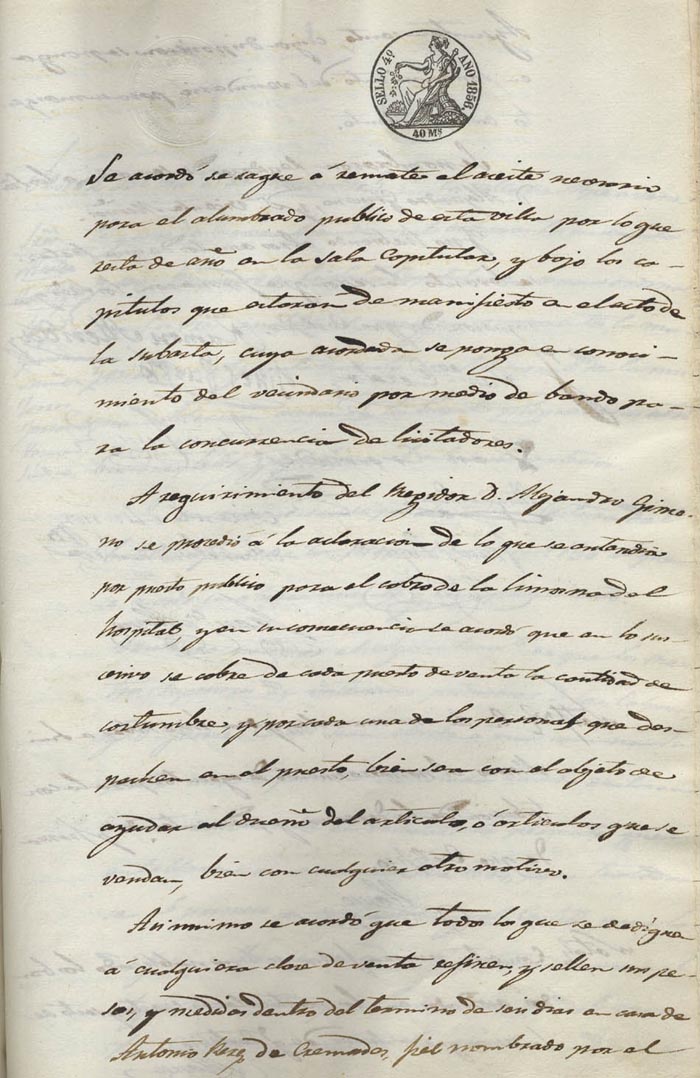 SELLO 4º AÑO 1856.
40 Ms
Se acordó se saque á remate el aceite necesario
para el alumbrado publico de esta villa por lo que
resta de año en la Sala Capitular, y bajo los ca-
pitulos que estaran de manifiesto en el acto de
la subasta, cuya acordada se ponga en conoci-
miento del vecindario por medio de bando pa-
ra la concurrencia de licitadores.
A requirimiento del Regidor D. Alejandro Gime-
no se procedió á la aclaracion de lo que se entendia
por puesto publico para el cobro de la limosna del
hospital, y en su consecuencia se acordó que en lo suc-
cesivo se cobre de cada puesto de venta la cantidad de
costumbre, y por cada una de las personas que des-
pachen en el puesto, bien sea con el objeto de
ayudar al dueño del articulo, ó articulos que se
vendan, bien con cualquier otro motivo.
Asimismo se acordó que todos los que se dediquen
á cualquiera clase de venta refinen, y sellen sus pe-
sos, y medidas dentro del termino de seis dias en casa de
Antonio Perez de Cremades, fiel nombrado por el